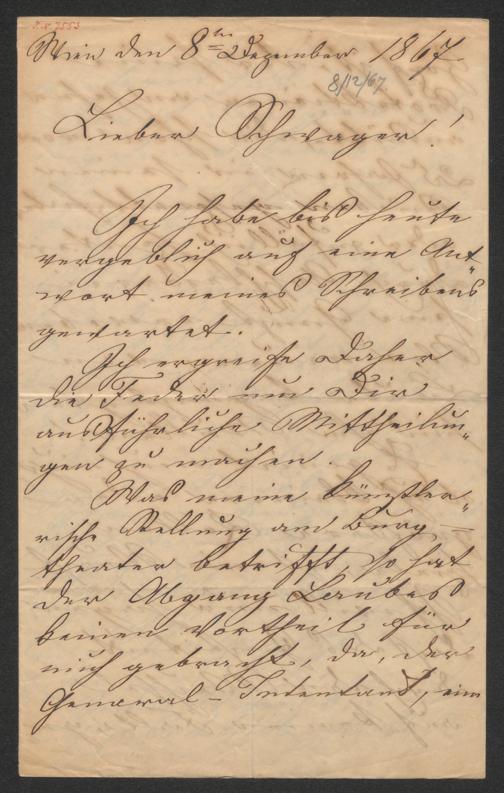 Wien den 8ten Dezember 1867
8/12/67
Lieber Schwager!
Ich habe bis heute
vergeblich auf eine Ant„
wort meines Schreibens
gewartet.
Ich ergreife daher
die Feder um Dir
ausführliche Mittheilun„
gen zu machen.
Was meine künstler„
rische Stellung am Burg–
theater betrifft, so hat
der Abgang Laubes
keinen Vortheil für
mich gebracht, da, der
General-Intendant, ein